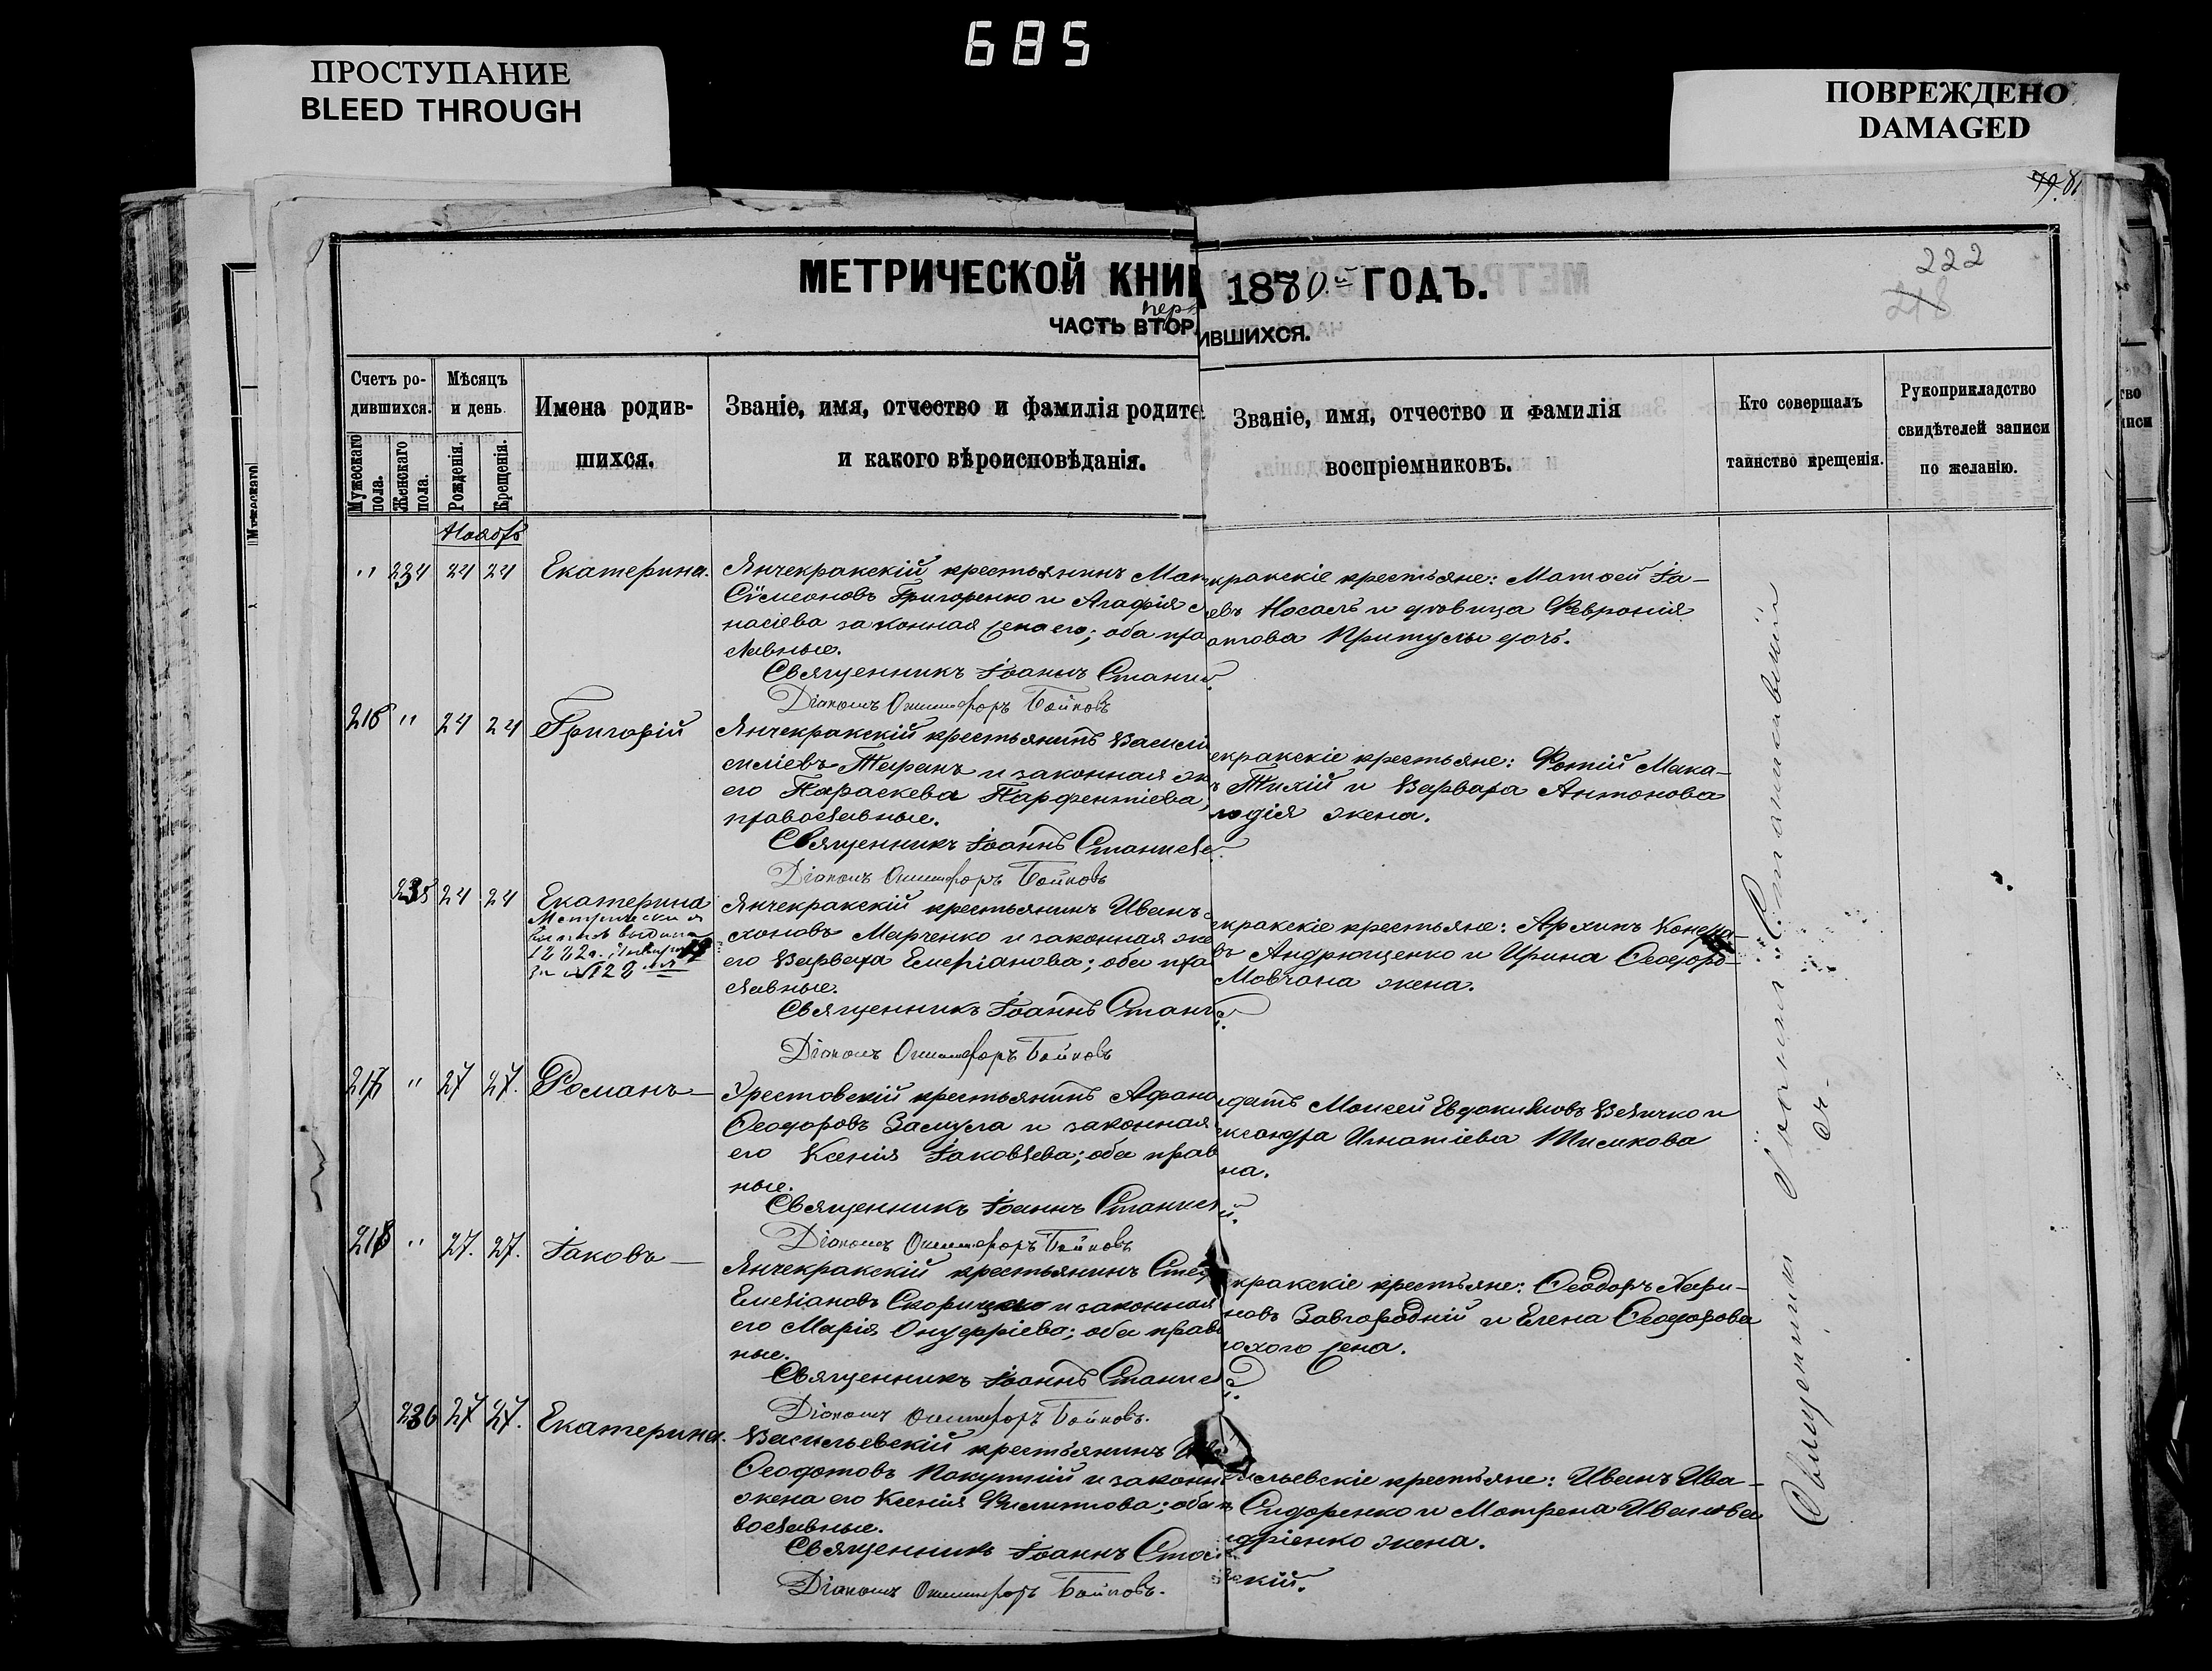 685
ПРОСТУПАНИЕ
BLEED THROUGH
ПОВРЕЖДЕНО
DAMAGED
79. 81
222
218
МЕТРИЧЕСКОЙ КНИГ 1870.й ГОДЪ.
перв
ЧАСТЬ ВТОР ИВШИХСЯ.
Счетъ ро-
дившихся.
Мужескаго пола.
Женскаго пола.
Мѣсяцъ
и день.
Рожденія.
Крещенія.
Имена родив-
шихся.
Званіе, имя, отчество и фамилія родите
и какого вѣроисповѣданія.
Званіе, имя, отчество и фамилія
воспріемниковъ.
Кто совершалъ
таинство крещенія.
Рукоприкладство
свидѣтелей записи
по желанію.
Ноябрь
" 234 24 24 Екатерина.
Янчекракскій крестьянинъ Мат
Сѵмеоновъ Григоренко и Агафія
насіева законная жена его; оба пра
славные.
Священникъ Іоаннъ Стани
Діаконъ Онисифоръ Бойковъ
кракскіе крестьяне: Матѳей Іа-
евъ Носаль и дѣвица Февронія
отова Притулы дочь.
216 " 24 24 Григорій
Янчекракскій крестьянинъ Васили
силіевъ Таранъ и законная же
его Параскева Парфентіева,
православные.
Священникъ Іоаннъ Станисл
Діаконъ Онисифоръ Бойковъ
екракскіе крестьяне: Фотій Мака-
ъ Тилій и Варвара Антонова
жена.
235 24 24 Екатерина
Метрическая
выдана
за № 128
Янчекракскій крестьянинъ Иванъ
хоновъ Марченко и законная же
его Варвара Емеліанова; оба пра
славные.
Священникъ Іоаннъ Стани
Діаконъ Онисифоръ Бойковъ
екракскіе крестьяне: Архипъ Кондра-
въ Андрющенко и Ирина Ѳеодоро-
Мовчана жена.
217 " 27 27. Романъ
крестьянинъ Афана
Ѳеодоровъ Замула и законная
его Ксенія Іаковлева; оба прав
ные.
Священникъ Іоаннъ Станисл
Діаконъ Онисифоръ Бойковъ
датъ Моисей Евдокимовъ Величко и
ександра Игнатіева Шишкова
на.
218 " 27. 27. Іаковъ
Янчекракскій крестьянинъ Сте
Емеліановъ и законная
его Марія Онуфріева; оба прав
ные.
Священникъ Іоаннъ Станисл
Діаконъ Онисифоръ Бойковъ.
кракскіе крестьяне: Ѳеодоръ Хари-
новъ Завгородній и Елена Ѳеодорова
охого жена.
236 27 27. Екатерина.
Васильевскій крестьянинъ Ив
Ѳеодотовъ и законн
жена его Ксенія Филиппова; оба п
вославные.
Священникъ Іоаннъ Стани
Діаконъ Онисифоръ Бойковъ.
сильевскіе крестьяне: Иванъ Ива-
Сидоренко и Матрена Иванова
дріенко жена.
скій.
Священникъ Іоаннъ Станиславскій